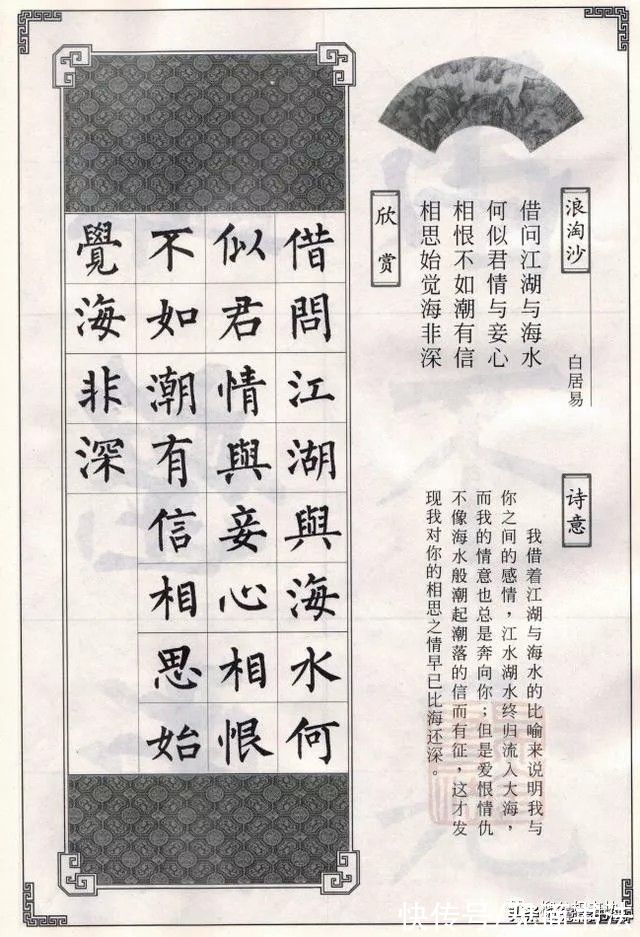 浪淘沙
白居易
借问江湖与海水
何似君情与妾心
相恨不如潮有信
相思始觉海非深
欣赏
诗意
我借着江湖与海水的比喻来说明我与
你之间的感情，江水湖水终归流入大海，
而我的情意也总是奔向你；但是爱恨情仇
不像海水般潮起潮落的信而有征，这才发
现我对你的相思之情早已比海还深。
借問江湖與海水何
似君情與妾心相恨
不如潮有信相思始
覺海非深
快传号/